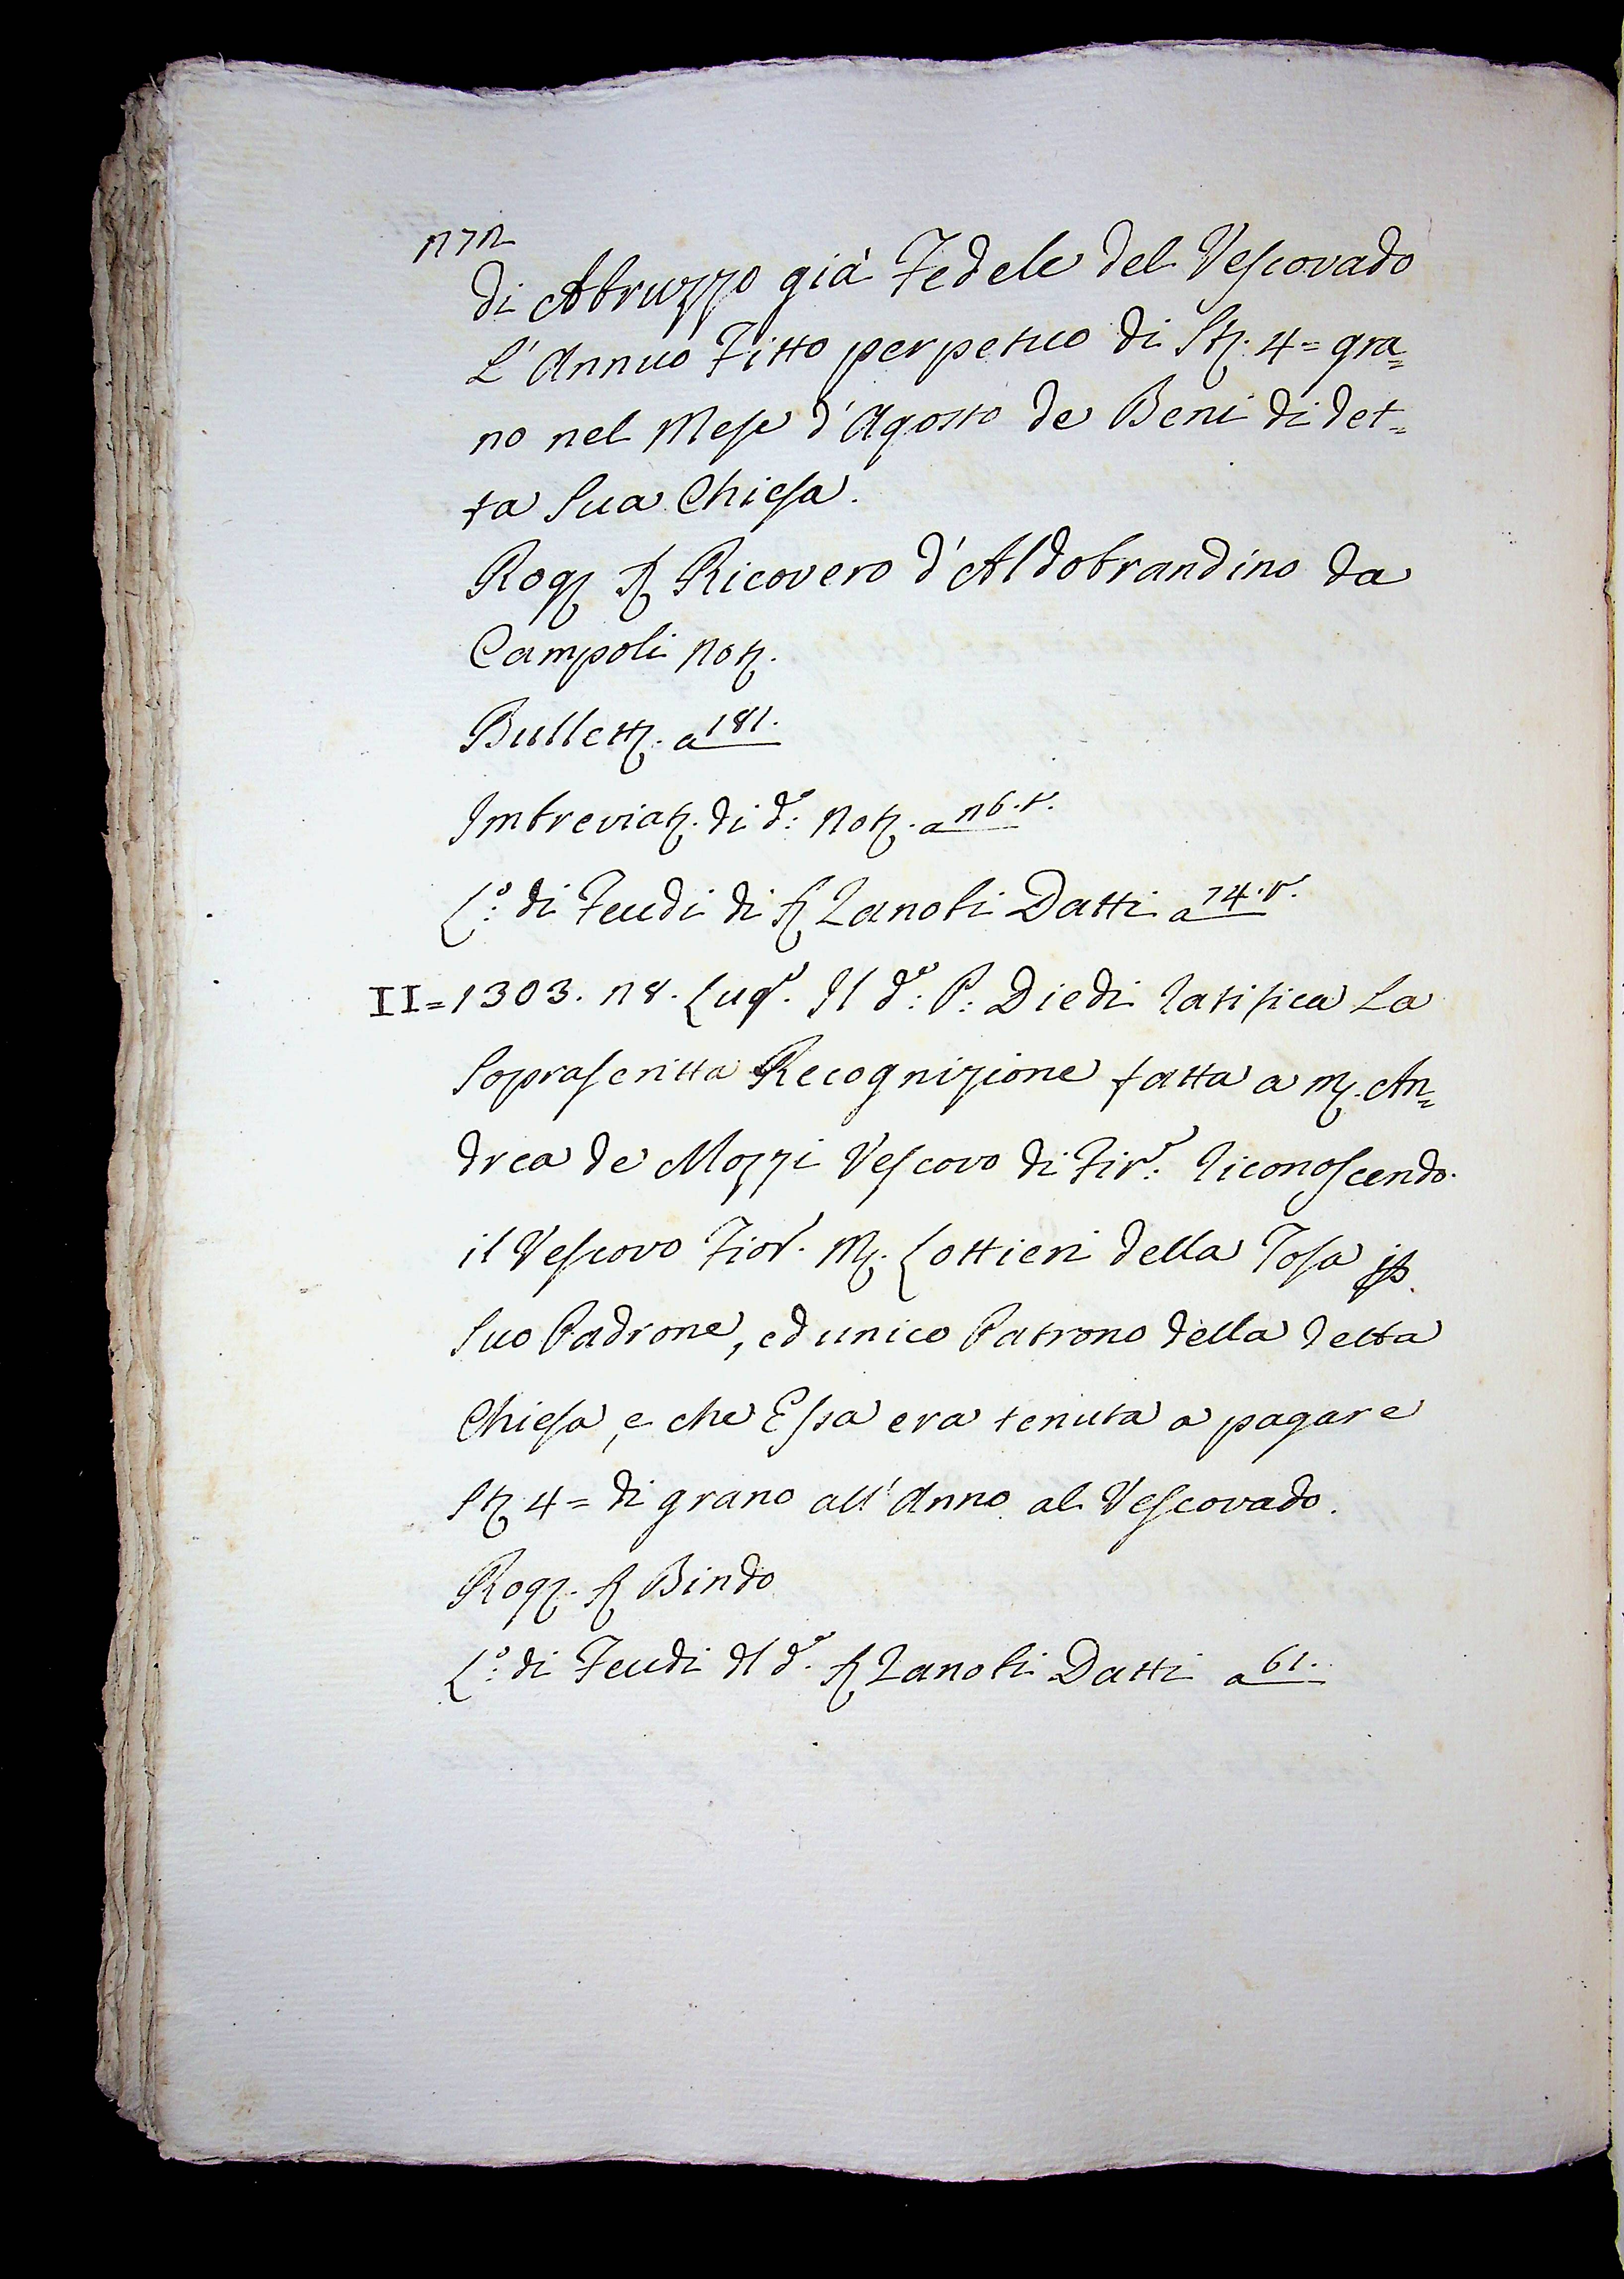 272
di Abruzzo già Fedele del Vescovado
L'Annuo Fitto perpetuo di St. 4= gra=
no nel Mese d'Agosto de Beni di det=
ta Sua Chiesa.
Rog. S. Ricovero d'Aldobrandino da
Campoli Not.
Bullett. a 181.
Imbreviat. di d.º: Not. a 26.t.
L.º: di Feudi di S. Zanobi Datti a 74.t.
II=1303. 28. Lug.º. Il d.º: P: Diedi ratifica La
Soprascritta Recognizione fatta a M. An=
drea de Mozzi Vescovo di Fir.e: riconoscendo
il Vescovo Fior.º. M. Lottieri della Tosa p.
Suo Padrone, ed unico Patrono della detta
Chiesa, e che Essa era tenuta a pagare
St. 4= di grano all'Anno al Vescovado.
Rog. S. Bindo
L.º: di Feudi dl d.º. S. Zanobi Datti a 61.